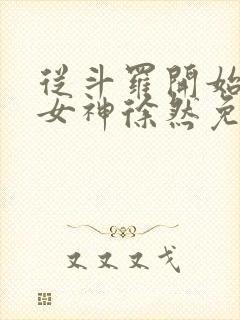 從斗羅開始
女神徐然免
又又又戈